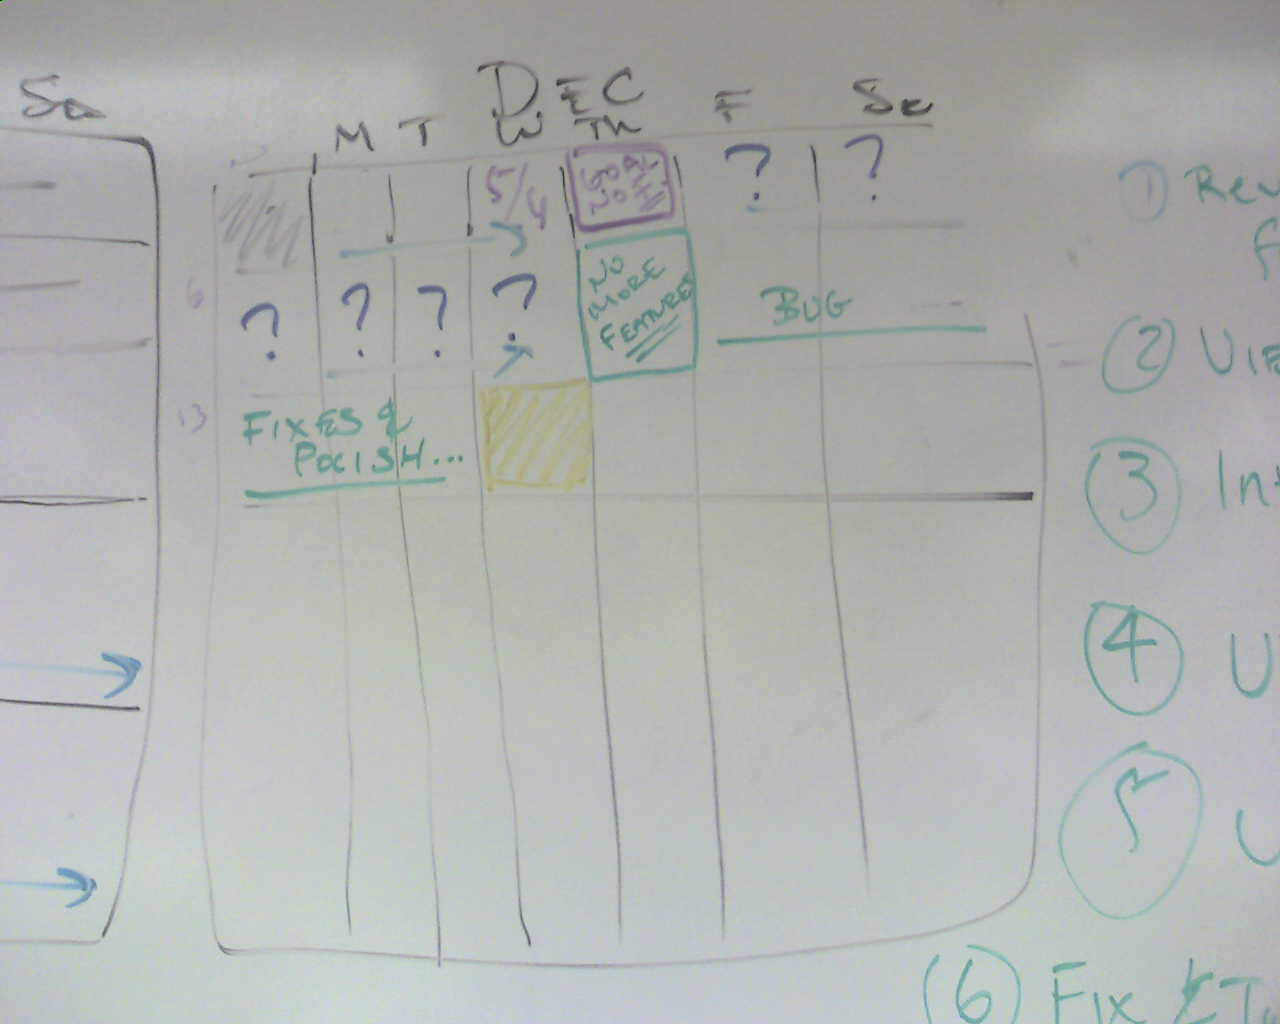 Sa
DEC
M T W TH F Sa
5/4
? ?
6
NO
MORE
FEATURES
? ? ? ?
BUG
13
FIXES &
POLISH...
1 Rev
2 VIE
3 Int
4 U
5 U
6 FIX &